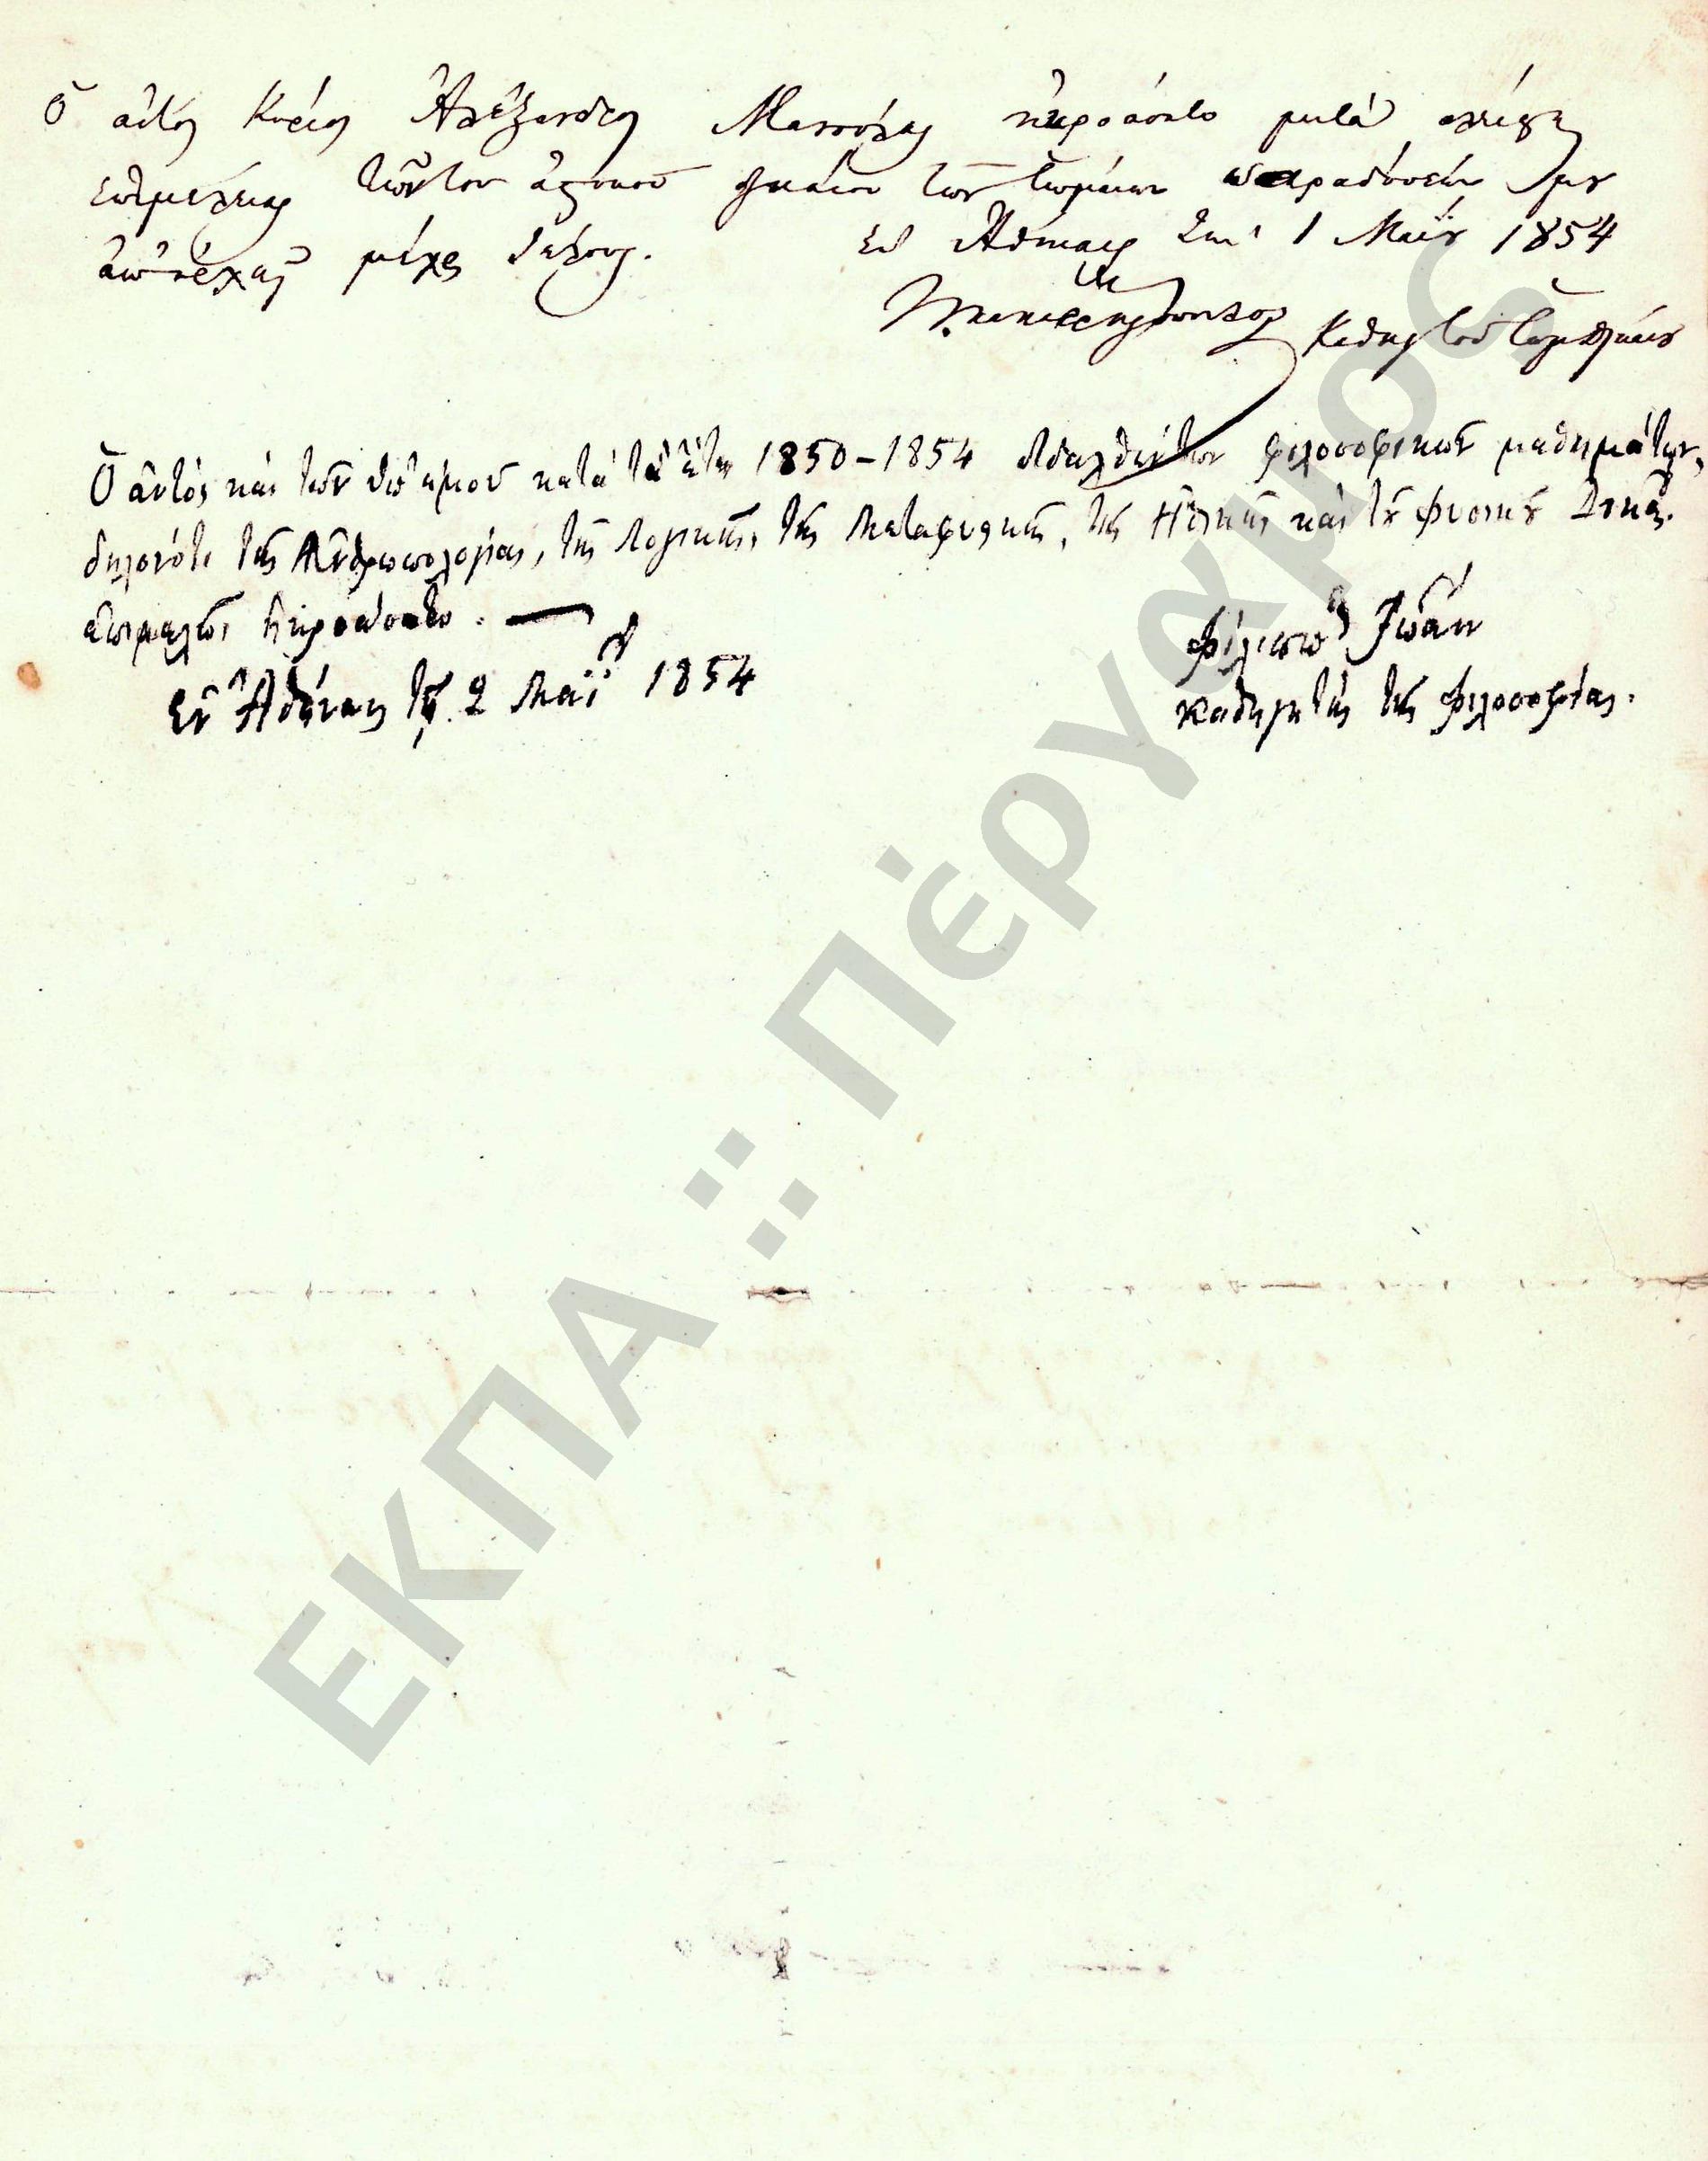 Ὁ αὐτὸς Κύριος Ἀλέξανδρος ἠκροάσατο μετὰ πλείστης
ἐπιμελείας τῶν τοῦ δικαίου τῶν Ῥωμαίων παραδόσεών μου
ἀπ' ἀρχῆς μέχρι τέλους. Ἐν Ἀθήναις τῇ 1 Μαΐου 1854
Καθηγ. τοῦ
Ὁ αὐτὸς καὶ τῶν ὑπ' ἐμοῦ κατὰ τὰ ἔτη 1850-1854 διδαχθέντων φιλοσοφικῶν μαθημάτων,
δηλονότι τῆς Ἀνθρωπολογίας, τῆς Λογικῆς, τῆς Μεταφυσικῆς, τῆς Ἠθικῆς καὶ τοῦ Φυσικοῦ Δικαίου
ἐπιμελῶς ἠκροάσατο. —
Φίλιππος Ἰωάννου
Ἐν Ἀθήναις τῇ 2 Μαΐου 1854
καθηγητὴς τῆς Φιλοσοφίας.
ΕΚΠΑ :: Πέργαμος